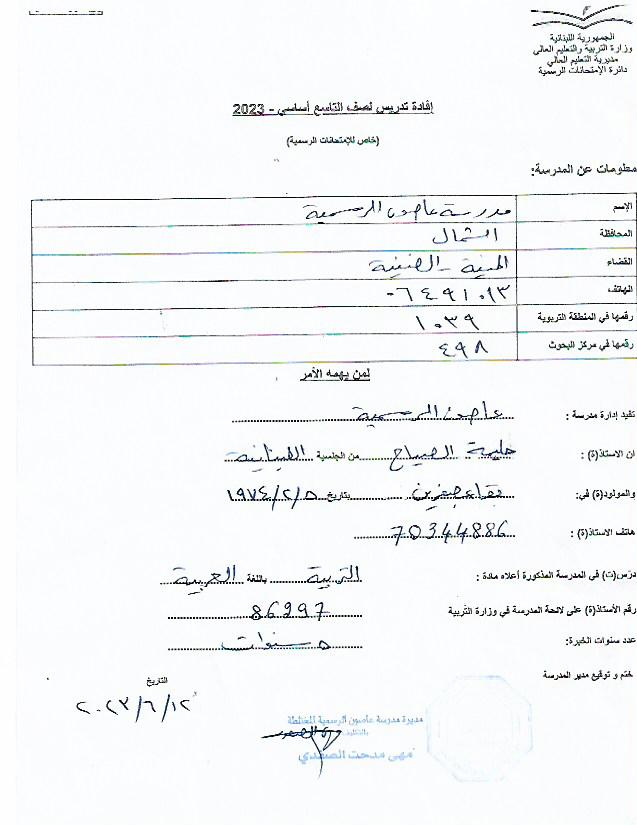 الجمهورية اللبنانية
وزارة التربية والتعليم العالي
مديرية التعليم العالي
دائرة الإمتحانات الرسمية
إفادة تدريس لصف التاسع أساسي - 2023
(خاص للإمتحانات الرسمية)
معلومات عن المدرسة:
الإسم مدرسة عاصون الرسمية
المحافظة الشمال
القضاء المنية - الضنية
الهاتف ٠٦٤٩١٠٩٣
رقمها في المنطقة التربوية ١٠٣٩
رقمها في مركز البحوث ٤٩٨
لمن يهمه الأمر
تفيد إدارة مدرسة : عاصون الرسمية
ان الاستاذ(ة) : حليمة الصياح من الجنسية اللبنانية
والمولود(ة) في: بقاعصفرين بتاريخ ١٩٧٤/٢/٥
هاتف الاستاذ(ة) : 70344886
درّس(ت) في المدرسة المذكورة أعلاه مادة : التربية باللغة العربية
رقم الأستاذ(ة) على لائحة المدرسة في وزارة التربية 86297
عدد سنوات الخبرة: ٥ سنوات
ختم و توقيع مدير المدرسة
التاريخ
٢٠٢٣/٦/١٢
مديرة مدرسة عاصون الرسمية المختلطة
بالتكليف
مهى مدحت الصمدي